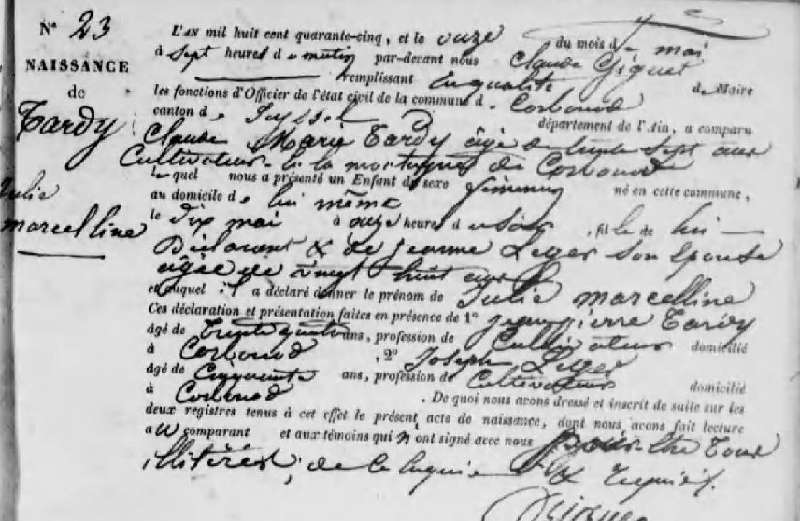 N° 23
NAISSANCE
de
Tardy
Julie
marcelline
L'AN mil huit cent quarante-cinq, et le onze du mois d mai
à sept heures d u matin par-devant nous Claude Giguet
remplissant en qualité de Maire
les fonctions d'Officier de l'état civil de la commune d Corbonod
canton d Seyssel département de l'Ain, a comparu
Claude Marie Tardy âgé de trente sept ans
Cultivateur de la montagne de Corbonod
lequel nous a présenté un Enfant du sexe féminin né en cette commune,
au domicile d lui même
le dix mai à onze heures d u soir, fille de lui
Déclarant & de Jeanne Leger son épouse
âgée de vingt huit ans
et auquel il a déclaré donner le prénom de Julie marcelline
Ces déclaration et présentation faites en présence de 1° Jean pierre Tardy
âgé de trente quatre ans, profession de Cultivateur domicilié
à Corbonod , 2° Joseph Leger
âgé de Cinquante ans, profession de Cultivateur domicilié
à Corbonod . De quoi nous avons dressé et inscrit de suite sur les
deux registres tenus à cet effet le présent acte de naissance, dont nous avons fait lecture
a u comparant et aux témoins qui n'ont signé avec nous pour être tous
illitérés, de ce enquis & requis.